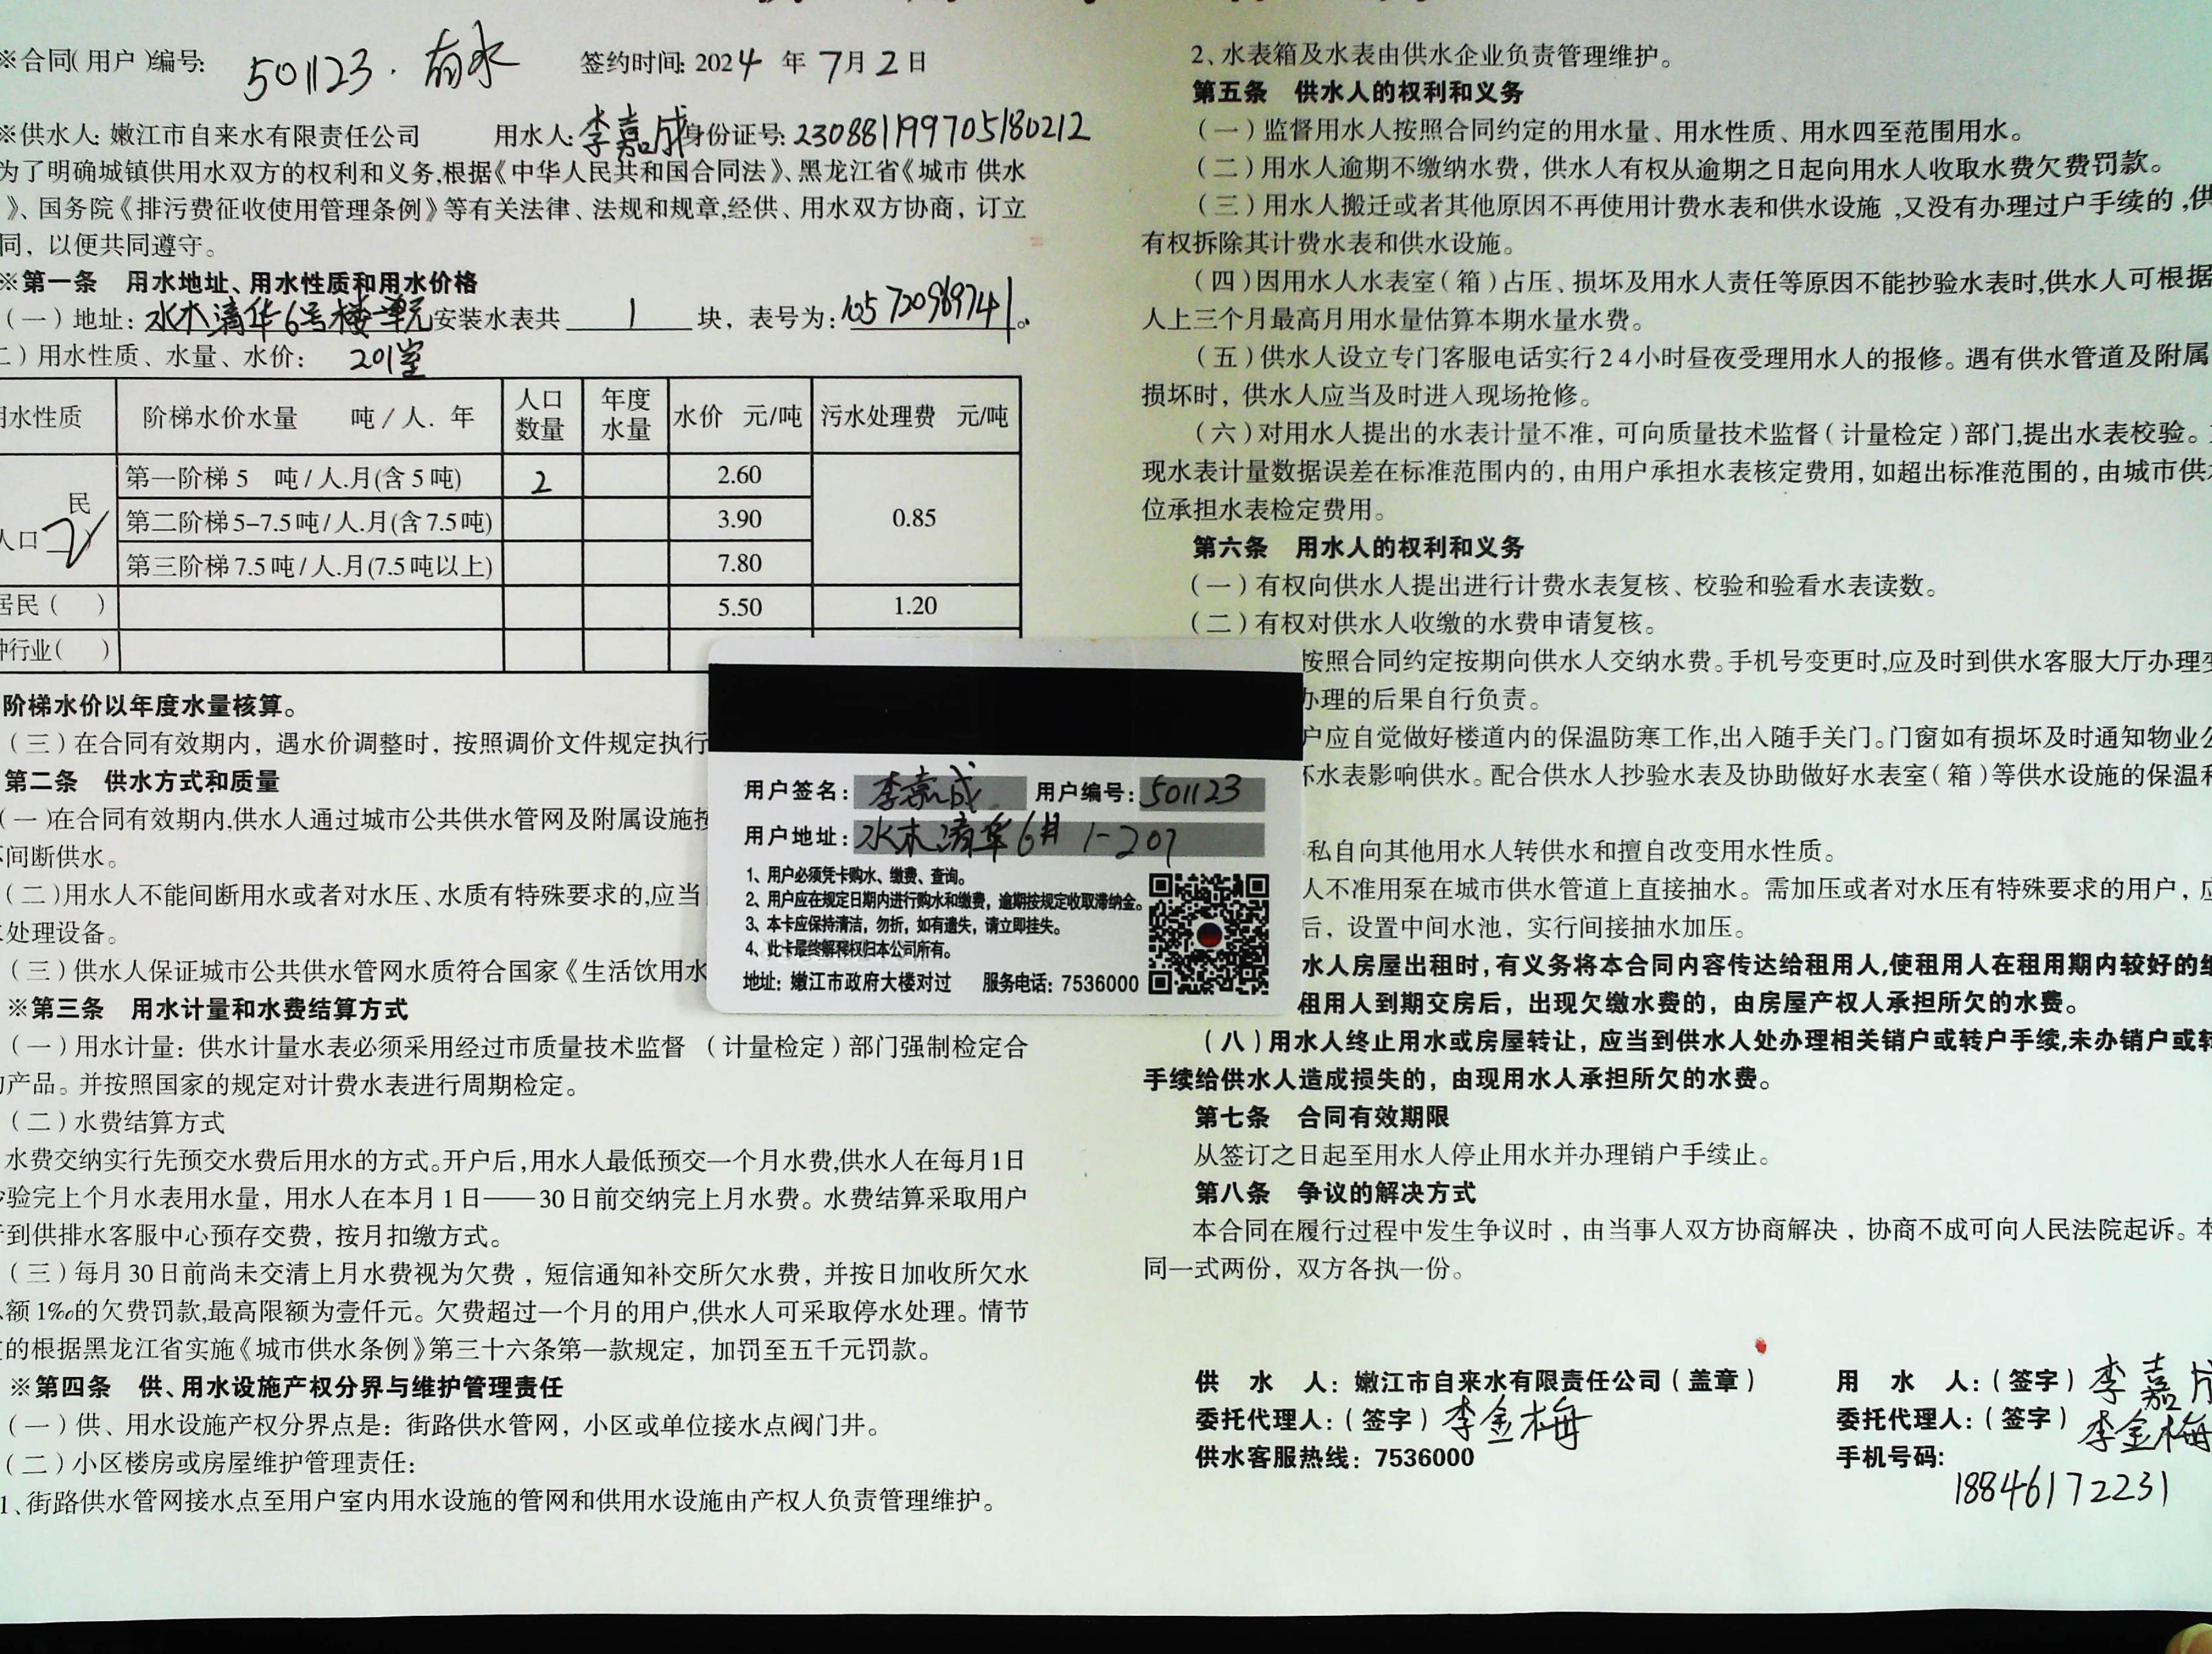 ※合同(用户)编号: 501123. 有水 签约时间: 2024 年 7月 2 日
※供水人: 嫩江市自来水有限责任公司 用水人: 李嘉成 身份证号: 230881199705180212
为了明确城镇供用水双方的权利和义务,根据《中华人民共和国合同法》、黑龙江省《城市 供水
》、国务院《排污费征收使用管理条例》等有关法律、法规和规章,经供、用水双方协商，订立
同，以便共同遵守。
※第一条 用水地址、用水性质和用水价格
(一)地址: 水木清华6号楼一单元 安装水表共 1 块，表号为:
二)用水性质、水量、水价: 201室
用水性质 阶梯水价水量 吨/人. 年 人口数量 年度水量 水价 元/吨 污水处理费 元/吨
民
人口 2 )
第一阶梯 5 吨/人.月(含 5 吨) 2 2.60
第二阶梯 5-7.5 吨/人.月(含 7.5 吨) 3.90 0.85
第三阶梯 7.5 吨/人.月(7.5 吨以上) 7.80
居民( ) 5.50 1.20
种行业( )
阶梯水价以年度水量核算。
(三)在合同有效期内，遇水价调整时，按照调价文件规定执行
第二条 供水方式和质量
(一)在合同有效期内,供水人通过城市公共供水管网及附属设施按
不间断供水。
(二)用水人不能间断用水或者对水压、水质有特殊要求的,应当
处理设备。
(三)供水人保证城市公共供水管网水质符合国家《生活饮用水
※第三条 用水计量和水费结算方式
(一)用水计量：供水计量水表必须采用经过市质量技术监督 (计量检定)部门强制检定合
的产品。并按照国家的规定对计费水表进行周期检定。
(二)水费结算方式
水费交纳实行先预交水费后用水的方式。开户后,用水人最低预交一个月水费,供水人在每月1日
抄验完上个月水表用水量，用水人在本月 1 日——30 日前交纳完上月水费。水费结算采取用户
到供排水客服中心预存交费，按月扣缴方式。
(三)每月 30 日前尚未交清上月水费视为欠费，短信通知补交所欠水费，并按日加收所欠水
额 1‰的欠费罚款,最高限额为壹仟元。欠费超过一个月的用户,供水人可采取停水处理。情节
的根据黑龙江省实施《城市供水条例》第三十六条第一款规定，加罚至五千元罚款。
※第四条 供、用水设施产权分界与维护管理责任
(一)供、用水设施产权分界点是：街路供水管网，小区或单位接水点阀门井。
(二)小区楼房或房屋维护管理责任:
1、街路供水管网接水点至用户室内用水设施的管网和供用水设施由产权人负责管理维护。
2、水表箱及水表由供水企业负责管理维护。
第五条 供水人的权利和义务
(一)监督用水人按照合同约定的用水量、用水性质、用水四至范围用水。
(二)用水人逾期不缴纳水费，供水人有权从逾期之日起向用水人收取水费欠费罚款。
(三)用水人搬迁或者其他原因不再使用计费水表和供水设施,又没有办理过户手续的,供
有权拆除其计费水表和供水设施。
(四)因用水人水表室(箱)占压、损坏及用水人责任等原因不能抄验水表时,供水人可根据
人上三个月最高月用水量估算本期水量水费。
(五)供水人设立专门客服电话实行24小时昼夜受理用水人的报修。遇有供水管道及附属
损坏时，供水人应当及时进入现场抢修。
(六)对用水人提出的水表计量不准，可向质量技术监督(计量检定)部门,提出水表校验。
现水表计量数据误差在标准范围内的，由用户承担水表核定费用，如超出标准范围的，由城市供水
位承担水表检定费用。
第六条 用水人的权利和义务
(一)有权向供水人提出进行计费水表复核、校验和验看水表读数。
(二)有权对供水人收缴的水费申请复核。
按照合同约定按期向供水人交纳水费。手机号变更时,应及时到供水客服大厅办理变
办理的后果自行负责。
户应自觉做好楼道内的保温防寒工作,出入随手关门。门窗如有损坏及时通知物业公
坏水表影响供水。配合供水人抄验水表及协助做好水表室(箱)等供水设施的保温和
私自向其他用水人转供水和擅自改变用水性质。
人不准用泵在城市供水管道上直接抽水。需加压或者对水压有特殊要求的用户，应
后，设置中间水池，实行间接抽水加压。
水人房屋出租时,有义务将本合同内容传达给租用人,使租用人在租用期内较好的
租用人到期交房后，出现欠缴水费的，由房屋产权人承担所欠的水费。
(八)用水人终止用水或房屋转让，应当到供水人处办理相关销户或转户手续,未办销户或转
手续给供水人造成损失的，由现用水人承担所欠的水费。
第七条 合同有效期限
从签订之日起至用水人停止用水并办理销户手续止。
第八条 争议的解决方式
本合同在履行过程中发生争议时，由当事人双方协商解决，协商不成可向人民法院起诉。本
同一式两份，双方各执一份。
供 水 人：嫩江市自来水有限责任公司(盖章)
委托代理人：(签字) 李金梅
供水客服热线：7536000
用 水 人：(签字) 李嘉成
委托代理人：(签字) 李金梅
手机号码:
18846172231
用户签名: 李嘉成 用户编号: 501123
用户地址: 水木清华6# 1-201
1、用户必须凭卡购水、缴费、查询。
2、用户应在规定日期内进行购水和缴费，逾期按规定收取滞纳金。
3、本卡应保持清洁，勿折，如有遗失，请立即挂失。
4、此卡最终解释权归本公司所有。
地址: 嫩江市政府大楼对过 服务电话: 7536000